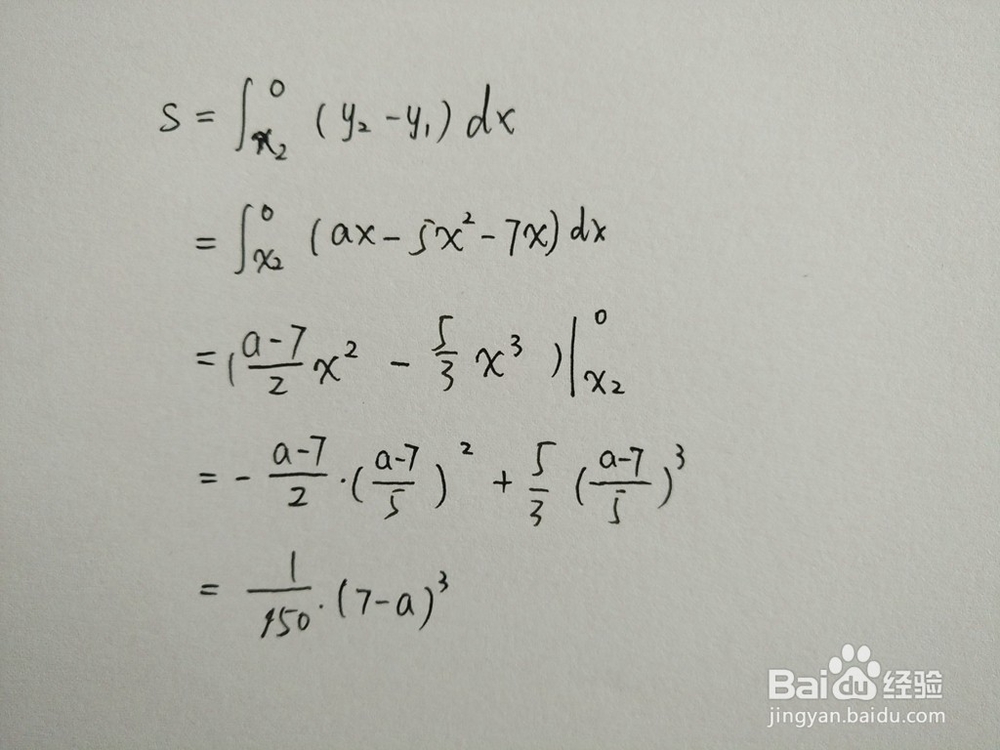 S = ∫_{x₂}^{0} (y₂ - y₁) dx
= ∫_{x₂}^{0} (ax - 5x² - 7x) dx
= (\frac{a-7}{2} x² - \frac{5}{3} x³ ) |_{x₂}^{0}
= - \frac{a-7}{2} · (\frac{a-7}{5})² + \frac{5}{3} (\frac{a-7}{5})³
= \frac{1}{150} · (7-a)³
Baidu经验
jingyan.baidu.com